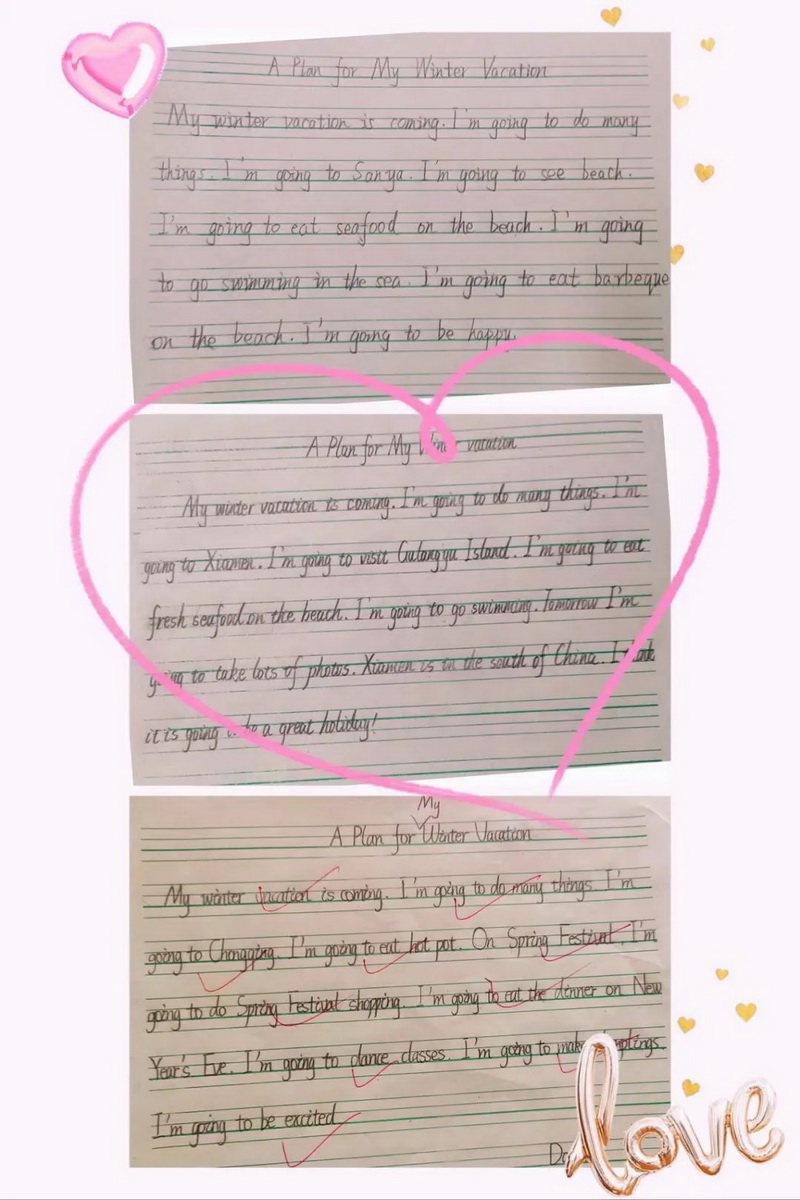 A Plan for My Winter Vacation
My winter vacation is coming. I'm going to do many
things. I'm going to Sanya. I'm going to see beach.
I'm going to eat seafood on the beach. I'm going
to go swimming in the sea. I'm going to eat barbeque
on the beach. I'm going to be happy.
A Plan for My vacation
My winter vacation is coming. I'm going to do many things. I'm
going to Xiamen. I'm going to visit Gulangyu Island. I'm going to eat
fresh seafood on the beach. I'm going to go swimming. Tomorrow I'm
going to take lots of photos. Xiamen is in the south of China. I think
it is going to be a great holiday!
My
A Plan for Winter Vacation
My winter vacation is coming. I'm going to do many things. I'm
going to Chongqing. I'm going to eat hot pot. On Spring Festival, I'm
going to do Spring Festival shopping. I'm going to eat the dinner on New
Year's Eve. I'm going to dance classes. I'm going to make
I'm going to be excited
love